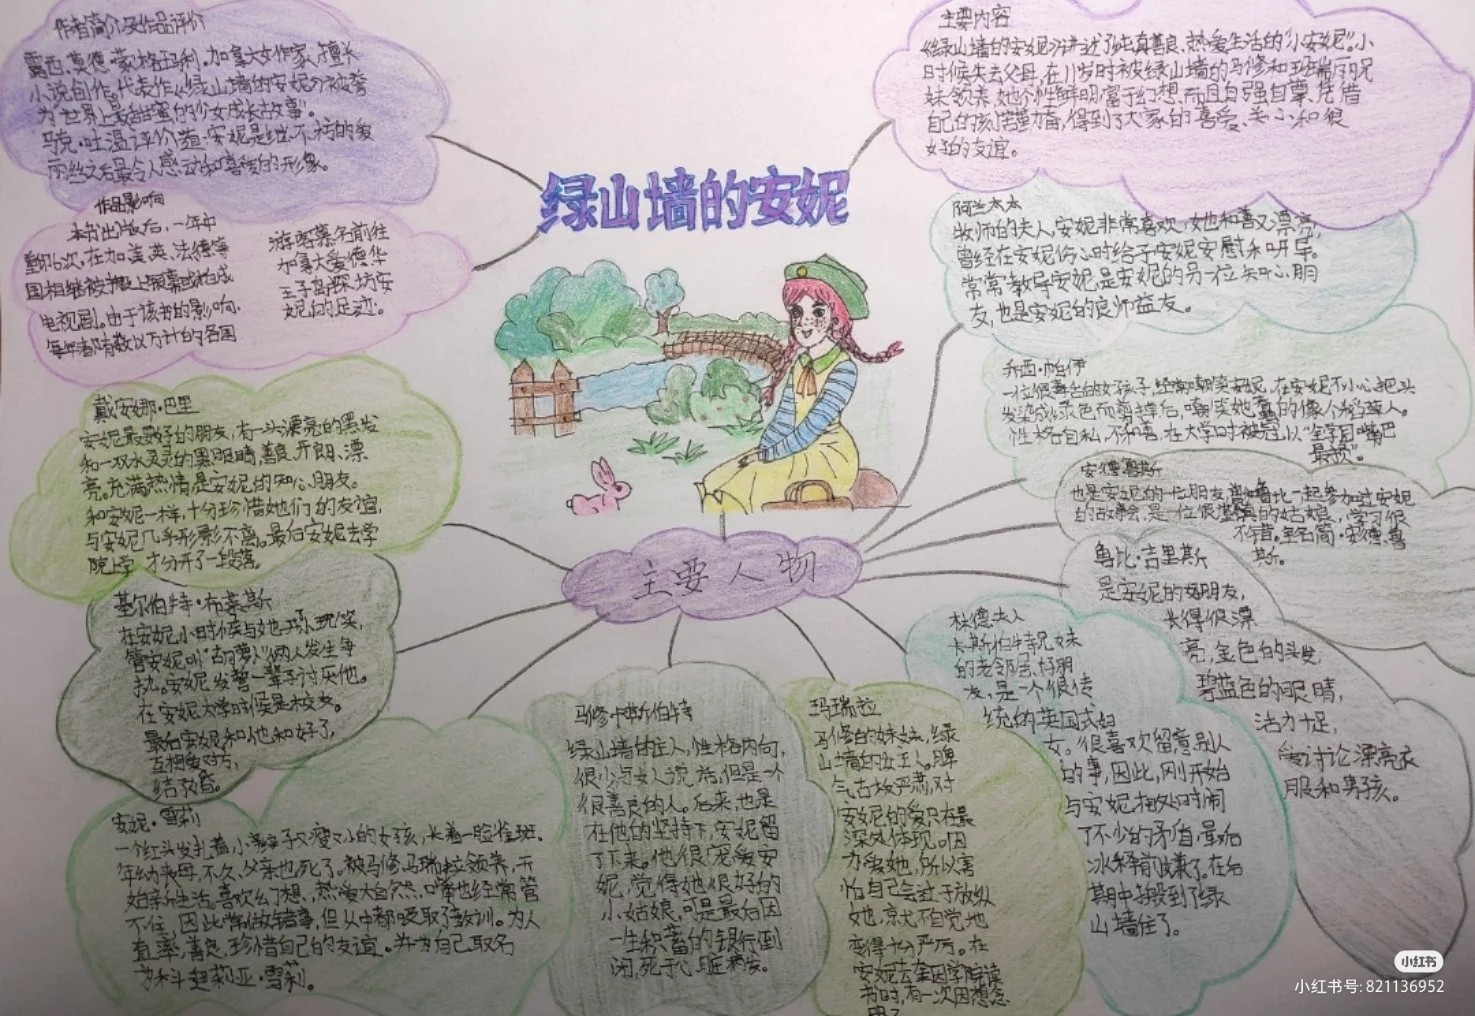 作者简介及作品评价
露西·莫德·蒙格玛利。加拿大女作家,擅长
小说创作。代表作《绿山墙的安妮》被誉
为"世界上最甜蜜的少女成长故事"。
马克·吐温评价道:安妮是继不朽的爱
丽丝之后最令人感动和喜爱的形象。
作品影响
本书出版后,一年中
重印6次,在加、美、英、法、德等
国相继被搬上银幕或拍成
电视剧。由于该书的影响,
每年都有数以万计的各国
游客慕名前往
加拿大爱德华
王子岛探访安
妮的足迹。
戴安娜·巴里
安妮最要好的朋友,有一头漂亮的黑发
和一双水灵灵的黑眼睛,善良、开朗、漂
亮。充满热情是安妮的知心朋友。
和安妮一样,十分珍惜她们的友谊,
与安妮几乎形影不离。最后安妮去学
院上学,才分开了一段落。
基尔伯特·布莱斯
在安妮小时候与她开小玩笑,
管安妮叫"胡萝卜"俩人发生争
执。安妮发誓一辈子讨厌他。
在安妮大学时候是校友。
最后安妮和他和好了,
互相爱对方,
结了婚。
安妮·雪莉
一个红头发扎着小辫子又瘦又小的女孩,长着一脸雀斑。
年幼丧母,不久,父亲也死了。被马修、马瑞拉领养,开
始新生活。喜欢幻想、热爱大自然,嘴也经常管
不住,因此常做错事,但从中都吸取了教训。为人
直率,善良,珍惜自己的友谊。并为自己取名
为科斗超莉亚·雪莉。
绿山墙的安妮
主要人物
主要内容
《绿山墙的安妮》讲述了纯真善良、热爱生活的"小安妮"。小
时候失去父母,在11岁时被绿山墙的马修和玛瑞丽兄
妹领养,她个性鲜明,富于幻想,而且自强自尊,凭借
自己的刻苦勤奋,得到了大家的喜爱、关心和很
好的友谊。
阿兰太太
牧师的夫人,安妮非常喜欢,她也和善又漂亮,
曾经在安妮伤心时给予安妮安慰和开导。
常常教导安妮,是安妮的另一位知心朋
友,也是安妮的良师益友。
乔西·帕伊
一位很毒舌的女孩子,经常嘲笑安妮,在安妮不小心把头
发染成绿色而剪掉后,嘲笑她蠢的像个稻草人。
性格自私,不和善,在大学时被冠以"全学园嘴巴
最损"。
安德鲁斯
也是安妮的一位朋友,曾和鲁比一起参加过安妮
的故事会,是一位很认真的姑娘,学习很
不错。全名简·安德鲁
斯。
鲁比·吉里斯
是安妮的好朋友,
长得很漂
亮,金色的头发,
碧蓝色的眼睛,
活力十足,
爱讨论漂亮衣
服和男孩。
林德夫人
卡斯伯特兄妹
的老邻居、好朋
友,是一个很传
统的英国式妇
女。很喜欢留意别人
的事,因此,刚开始
与安妮相处时闹
了不少的矛盾,最后
冰释前嫌了。在后
期中搬到了绿
山墙住了。
马修卡斯伯特
绿山墙的主人,性格内向,
很少与女人说话,但是一个
很善良的人。后来,也是
在他的坚持下,安妮留
了下来。他很宠爱安
妮,觉得她很好的
小姑娘,可是最后因
一生积蓄的银行倒
闭,死于心脏病发。
玛瑞拉
马修的妹妹,绿
山墙的女主人。脾
气古板严肃,对
安妮的爱只在最
深处体现。因
为爱她,所以害
怕自己会过于放纵
她,竟不自觉地
变得十分严厉。在
安妮去奎因学院读
书时,有一次因想念
小红书
小红书号: 821136952